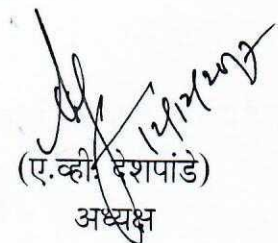 (ए.व्ही. देशपांडे)
अध्यक्ष